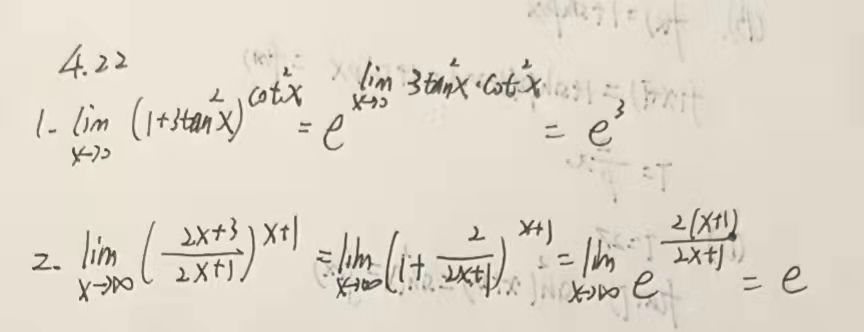 4.22
1. lim_{x→0} (1+3tan²x)^{cot²x} = e^{lim_{x→0} 3tan²x·cot²x} = e³
2. lim_{x→∞} ((2x+3)/(2x+1))^{x+1} = lim_{x→∞} (1+2/(2x+1))^{x+1} = lim_{x→∞} e^{2(x+1)/(2x+1)} = e